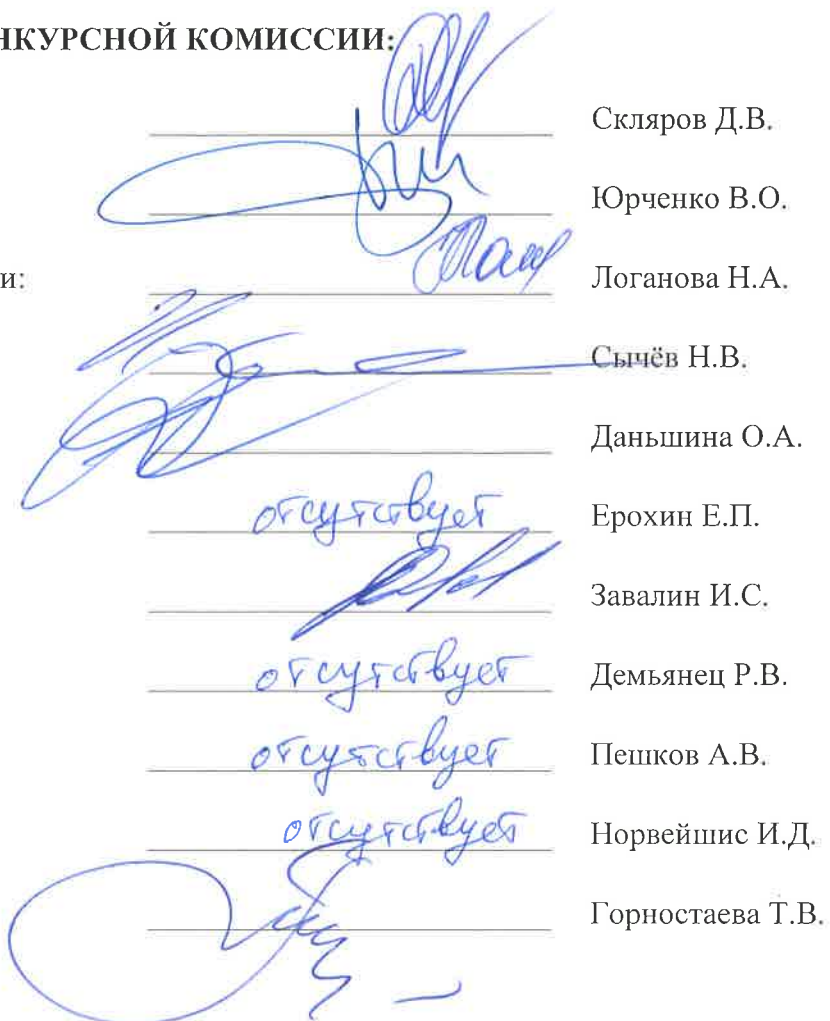 НКУРСНОЙ КОМИССИИ:
Скляров Д.В.
Юрченко В.О.
и: Логанова Н.А.
Сычёв Н.В.
Даньшина О.А.
отсутствует Ерохин Е.П.
Завалин И.С.
отсутствует Демьянец Р.В.
отсутствует Пешков А.В.
отсутствует Норвейшис И.Д.
Горностаева Т.В.